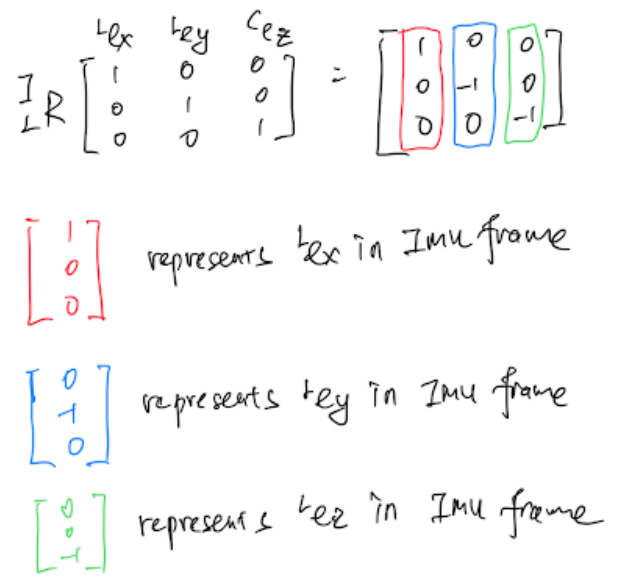 ᴸex ᴸey ᶜez
ᴵ_L R [ 1 0 0 = [ 1 0 0
0 1 0 0 -1 0
0 0 1 ] 0 0 -1 ]
[ 1
0 represents ᴸex in Imu frame
0 ]
[ 0
-1 represents ᴸey in Imu frame
0 ]
[ 0
0 represents ᴸez in Imu frame
-1 ]